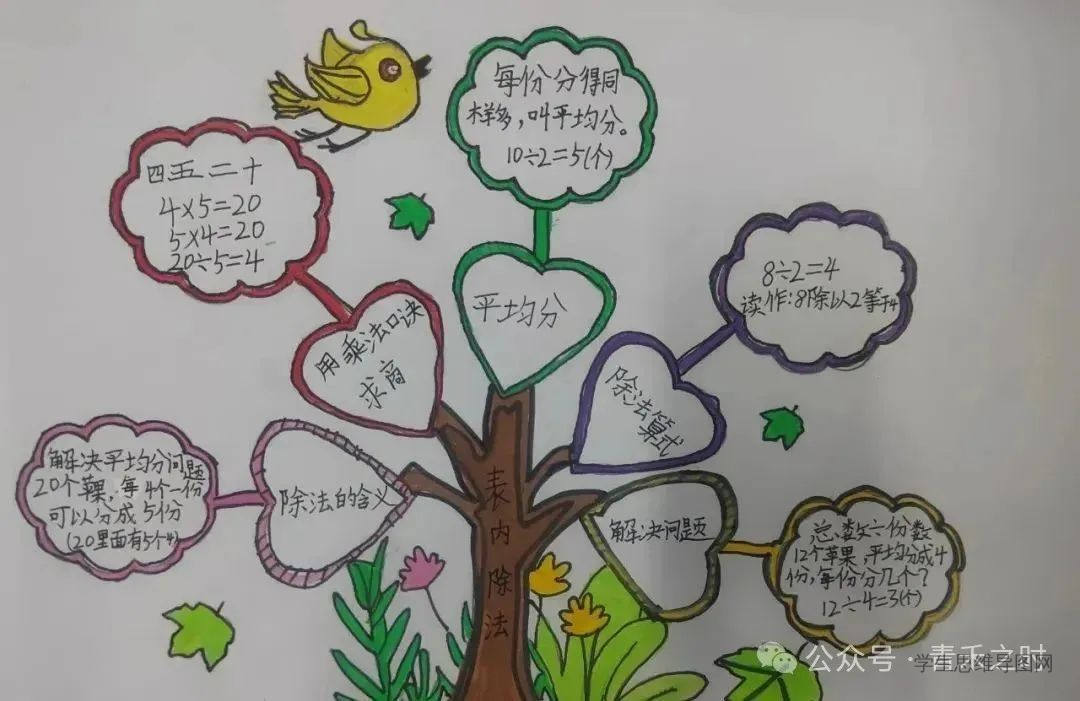 每份分得同
样多，叫平均分。
10÷2=5(个)
平均分
四五二十
4×5=20
5×4=20
20÷5=4
用乘法口诀
求商
8÷2=4
读作：8除以2等于4
除法算式
解决平均分问题
20个苹果，每4个一份
可以分成5份
(20里面有5个4)
除法的含义
总数÷份数
12个苹果，平均分成4
份，每份分几个？
12÷4=3(个)
解决问题
表内除法
公众号·青禾之时
学生思维导图网